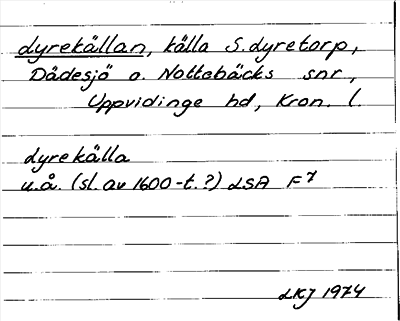 Lyrekällan, källa S. Lyretorp,
Dädesjö o. Nottebäcks snr,
Uppvidinge hd, Kron. l.
Lyrekälla
u.å. (sl. av 1600-t.?) LSA F7
LKJ 1974